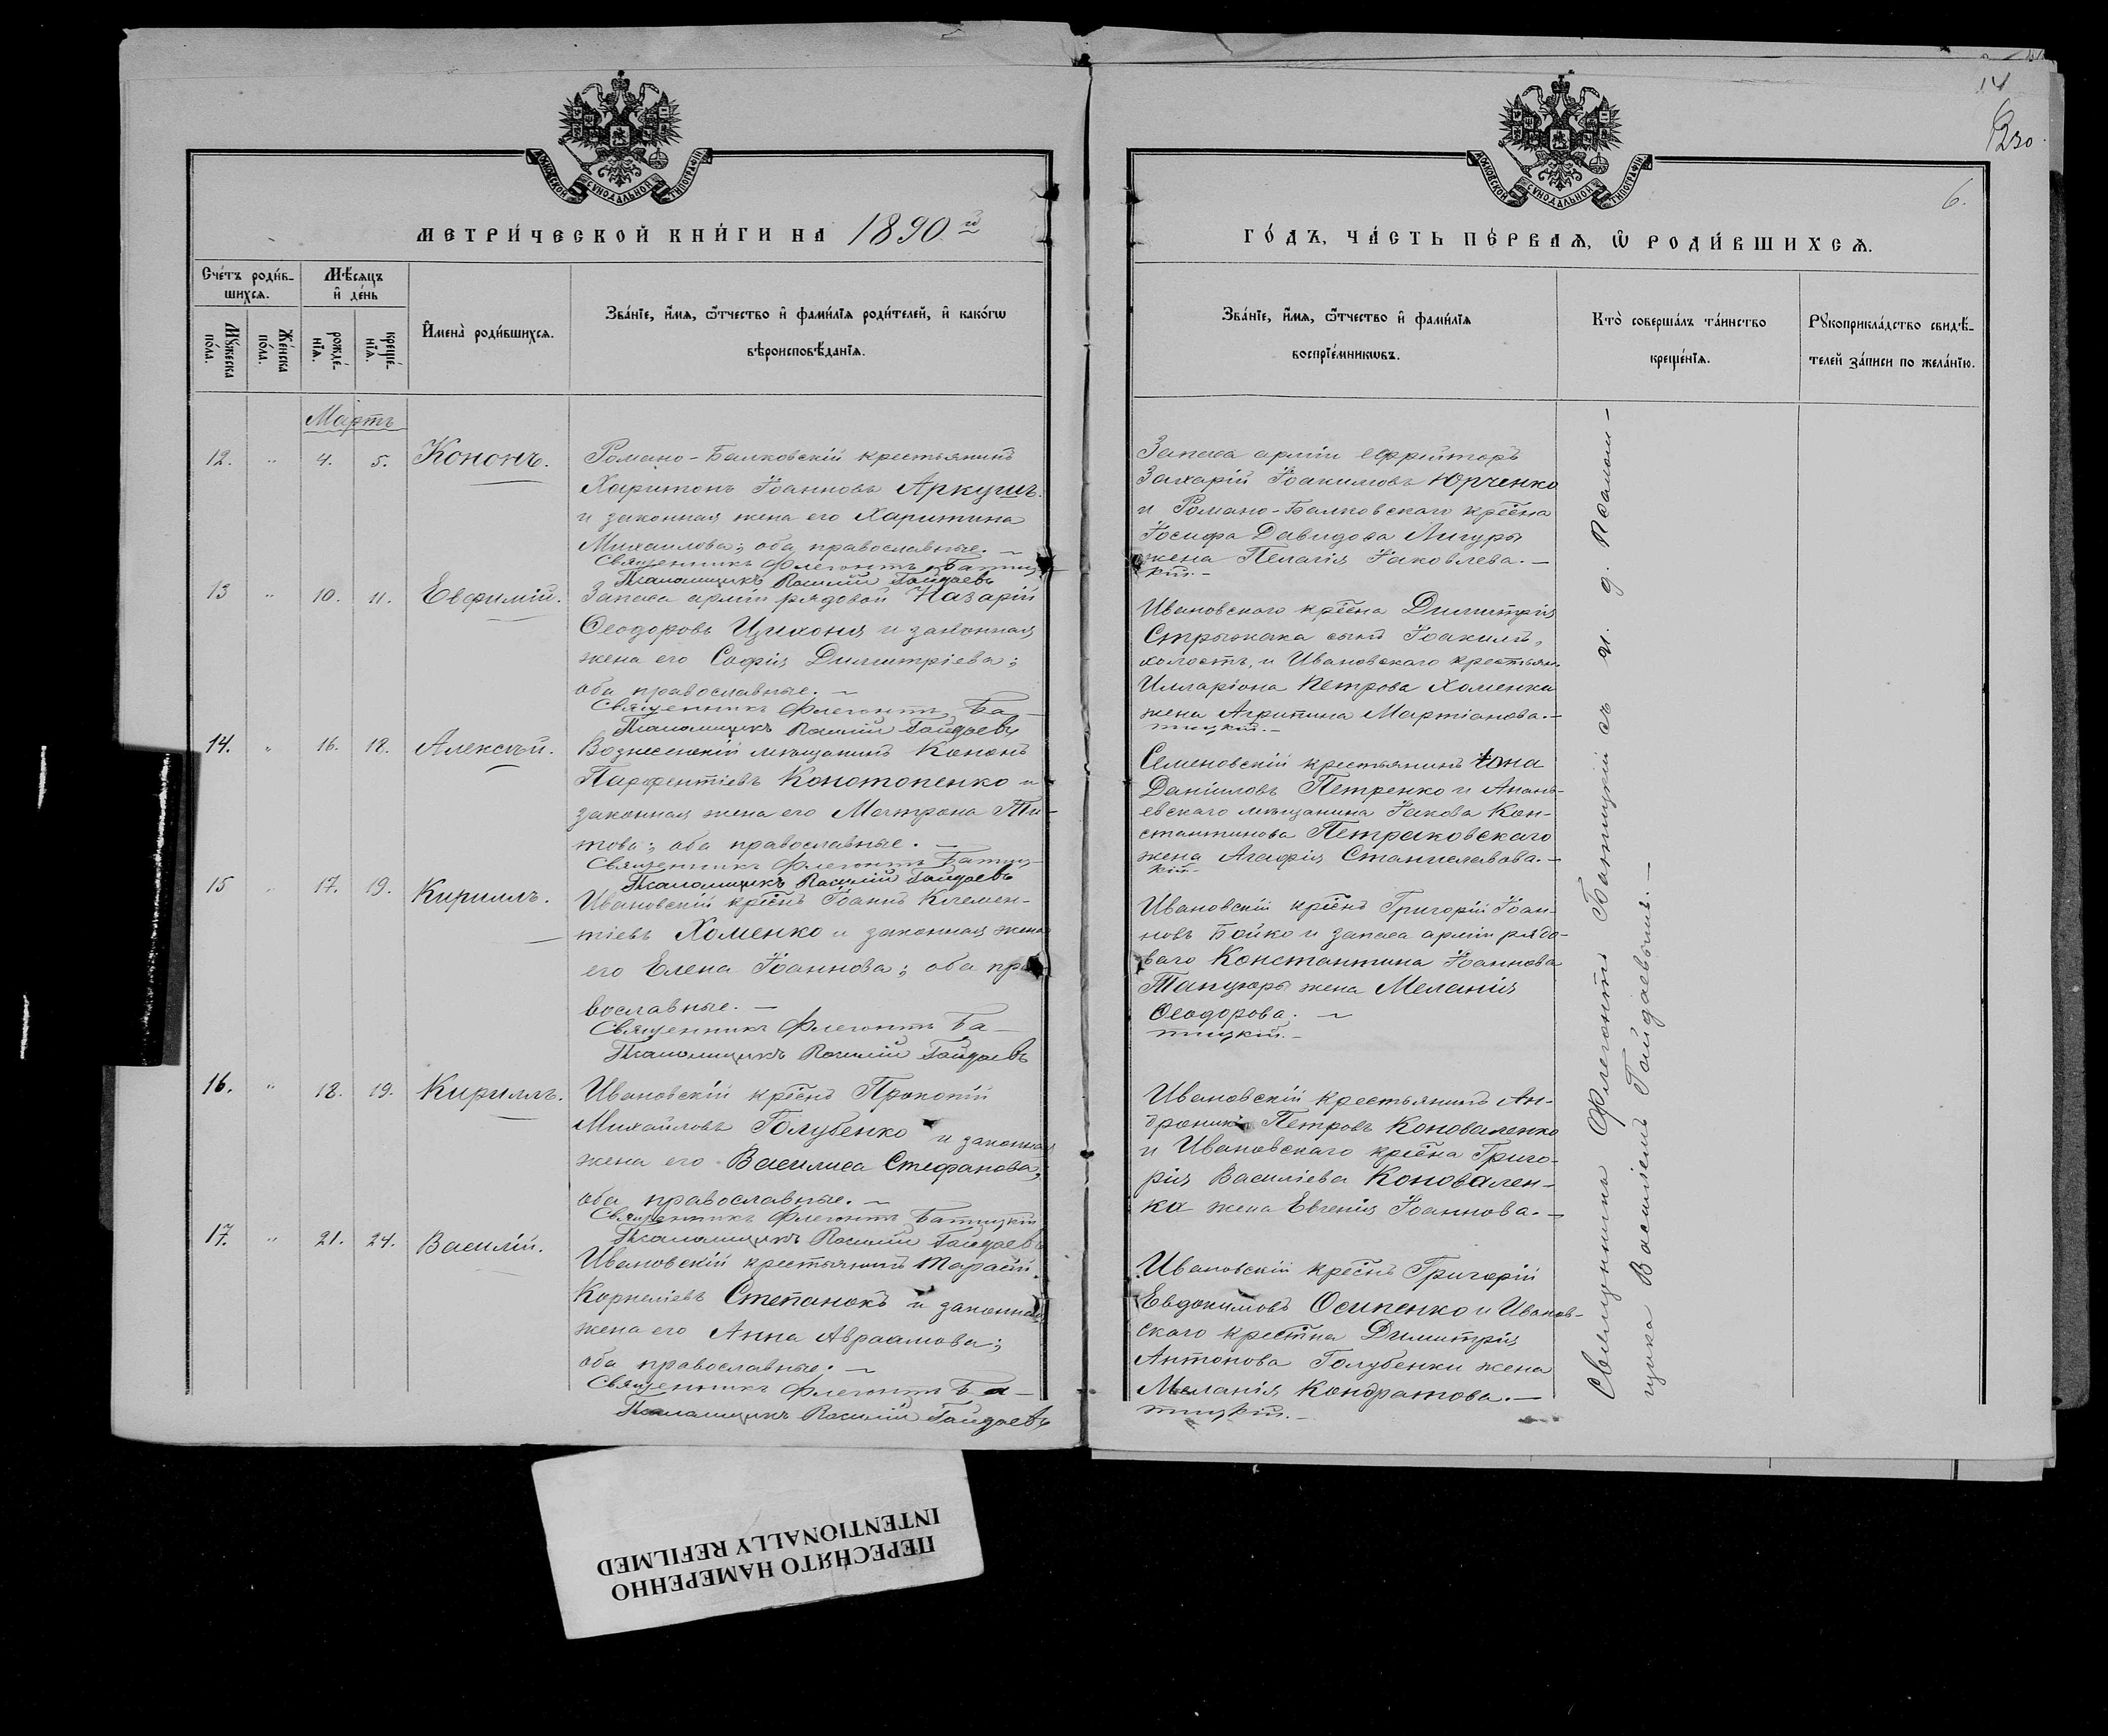 МОСКОВСКОЙ СУНОДАЛЬНОЙ ТИПОГРАФІИ
МЕТРИ́ЧЕСКОЙ КНИ́ГИ НА 1890 й
Сче́тъ роди́в-
шихсѧ.
Мѣ́сѧцъ
и҆ де́нь
И҆мена̀ роди́вшихсѧ.
Зва́нїе, и҆́мѧ, ѻ҆́тчество и҆ фами́лїѧ роди́телей, и҆ како́гѡ
вѣроисповѣ́данїѧ.
Мꙋ́жеска
по́ла.
Же́нска
по́ла.
рожде́-
нїѧ.
креще́-
нїѧ.
Мартъ
12. " 4. 5. Кононъ.
Романо-Балковскій крестьянинъ
Харитонъ Іоанновъ Аркушъ.
и законная жена его Харитина
Михаилова; оба православные. –
Священникъ Флегонтъ Батиц-
Псаломщикъ Василій Гайдаевъ
13 " 10. 11. Евфимій.
Запаса арміи рядовой Назарій
Ѳеодоровъ Цихоня и законная
жена его Софія Димитріева;
оба православные. –
Священникъ Флегонтъ Ба-
Псаломщикъ Василій Гайдаевъ
14. " 16. 18. Алексѣй.
Вознесенскій мѣщанинъ Кононъ
Парфентіевъ Конотопенко и
законная жена его Матрона Ти-
това; оба православные. –
Священникъ Флегонтъ Батиц-
Псаломщикъ Василій Гайдаевъ
15 " 17. 19. Кириллъ.
Ивановскій кре̄нъ Іоаннъ Клемен-
тіевъ Хоменко и законная жена
его Елена Іоаннова; оба пра-
вославные. –
Священникъ Флегонтъ Ба-
Псаломщикъ Василій Гайдаевъ
16. " 18. 19. Кириллъ.
Ивановскій кре̄нъ Прокопій
Михайловъ Голубенко и законная
жена его Василиса Стефанова;
оба православные. –
Священникъ Флегонтъ Батицкій
Псаломщикъ Василій Гайдаевъ
17. " 21. 24. Василій.
Ивановскій крестьянинъ Тарасій
Корнеліевъ Степанокъ и законная
жена его Анна Авраамова;
оба православные. –
Священникъ Флегонтъ Ба-
Псаломщикъ Василій Гайдаевъ
14
230.
6.
МОСКОВСКОЙ СУНОДАЛЬНОЙ ТИПОГРАФІИ
ГО́ДЪ, ЧА́СТЬ ПЕ́РВАѦ, Ѡ҆ РОДИ́ВШИХСѦ.
Зва́нїе, и҆́мѧ, ѻ҆́тчество и҆ фами́лїѧ
воспрїе́мникѡвъ.
Кто̀ соверша́лъ та́инство
креще́нїѧ.
Рꙋкоприкла́дство свидѣ́-
телей за́писи по жела́нїю.
Запаса арміи ефрейторъ
Захарій Іоакимовъ Юрченко
и Романо-Балковскаго кре̄на
Іосифа Давидова Лигуры
жена Пелагія Іаковлева. –
кій. –
Ивановскаго кре̄на Димитрія
Стрыжака сынъ Іоакимъ,
холостъ, и Ивановскаго крестьян.
Илларіона Петрова Хоменки
жена Агрипина Мартіанова. –
тицкій. –
Семеновскій крестьянинъ Іона
Даніиловъ Петренко и Анань-
евскаго мѣщанина Іакова Кон-
стантинова Петраковскаго
жена Агафія Станиславова. –
кій. –
Ивановскій кре̄нъ Григорій Іоан-
новъ Бойко и запаса арміи рядо-
ваго Константина Іоаннова
Танцюры жена Меланія
Ѳеодорова. –
тицкій. –
Ивановскій крестьянинъ Ан-
дроникъ Петровъ Коноваленко
и Ивановскаго кре̄на Григо-
рія Василіева Коновален-
ка жена Евгенія Іоаннова. –
Ивановскій кре̄нъ Григорій
Евдокимовъ Осипенко и Иванов-
скаго крестна Димитрія
Антонова Голубенки жена
Меланія Кондратова. –
тицкій. –
Священникъ Флегонтъ Батицкій съ и. д. Псалом-
щика Василіемъ Гайдаевымъ. –
ПЕРЕСНЯТО НАМЕРЕННО
INTENTIONALLY REFILMED